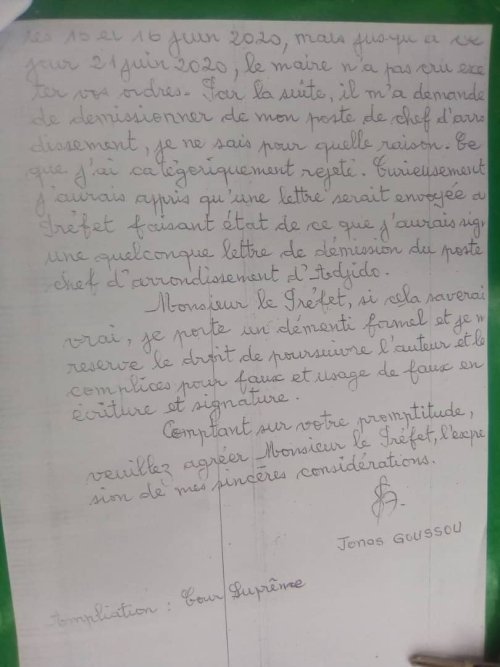 les 15 et 16 juin 2020, mais jusqu'à ce
jour 21 juin 2020, le maire n'a pas cru exé
ter vos ordres. Par la suite, il m'a demandé
de demissionner de mon poste de chef d'arro
dissement, je ne sais pour quelle raison. Ce
que j'ai catégoriquement rejeté. Curieusement
j'aurais appris qu'une lettre serait envoyée a
Préfet faisant état de ce que j'aurais sign
une quelconque lettre de démission du poste
chef d'arrondissement d'Adjido.
Monsieur le Préfet, si cela saverai
vrai, je porte un démenti formel et je m
reserve le droit de poursuivre l'auteur et le
complices pour faux et usage de faux en
écriture et signature.
Comptant sur votre promptitude,
veuillez agréer Monsieur le Préfet, l'expre
sion de mes sincères considérations.
Jonas GOUSSOU
Ampliation : Cour Suprême